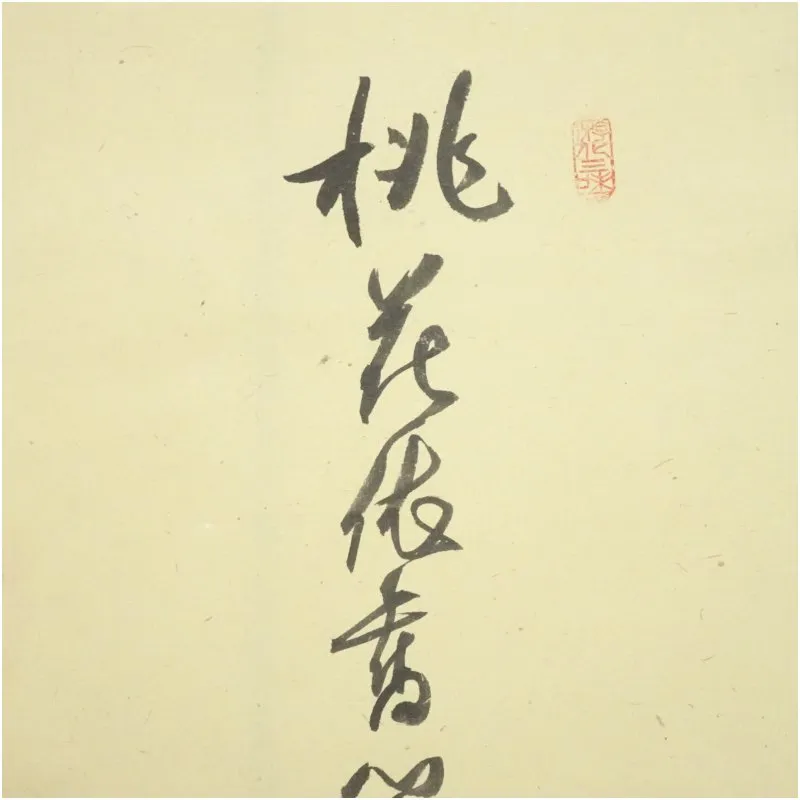 桃花依舊